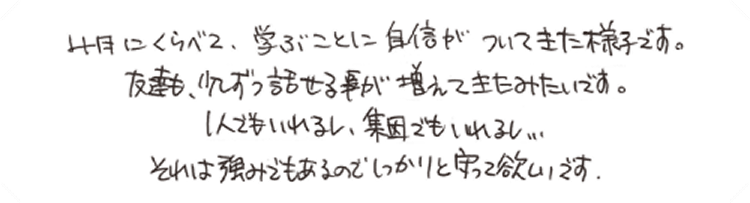 4月にくらべて、学ぶことに自信がついてきた様子です。
友達も、少しずつ話せる事が増えてきたみたいです。
1人でもいれるし、集団でもいれるし…
それは強みでもあるのでしっかりと守って欲しいです.